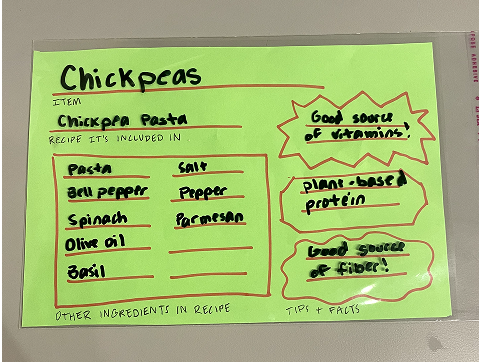 Chickpeas
ITEM
Chickpea Pasta
RECIPE IT'S INCLUDED IN
Pasta
Bell pepper
Spinach
Olive oil
Basil
Salt
Pepper
Parmesan
OTHER INGREDIENTS IN RECIPE
Good source
of vitamins!
plant-based
protein
Good source
of fiber!
TIPS + FACTS